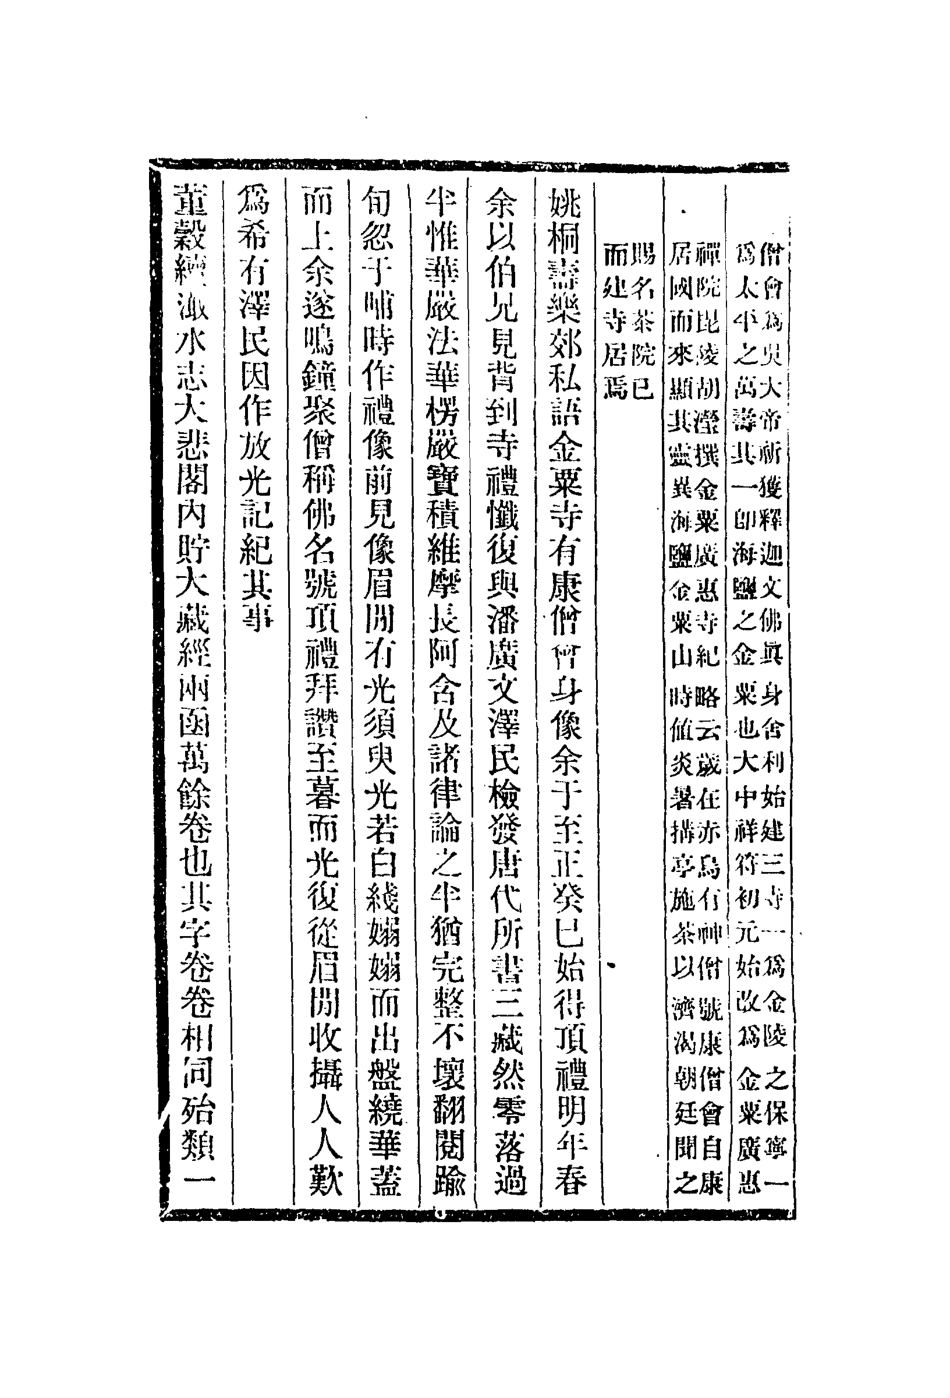 僧會爲吳大帝祈獲釋迦文佛眞身舍利始建三寺一爲金陵之保寧一
爲太平之萬壽其一卽海鹽之金粟也大中祥符初元始改爲金粟廣惠
禪院毘陵胡瀅撰金粟廣惠寺紀略云歲在赤烏有神僧號康僧會自康
居國而來顯其靈異海鹽金粟山時値炎暑搆亭施茶以濟渴朝廷聞之
賜名茶院已
而建寺居焉
姚桐壽樂郊私語金粟寺有康僧會身像余于至正癸巳始得頂禮明年春
余以伯兄見背到寺禮懺復與潘廣文澤民檢發唐代所書三藏然零落過
半惟華嚴法華楞嚴寶積維摩長阿含及諸律論之半猶完整不壞翻閱踰
旬忽于晡時作禮像前見像眉閒有光須臾光若白綫嫋嫋而出盤繞華蓋
而上余遂鳴鐘聚僧稱佛名號項禮拜讚至暮而光復從眉閒收攝人人歎
爲希有澤民因作放光記紀其事
董穀續澉水志大悲閣內貯大藏經兩函萬餘卷也其字卷卷相同殆類一